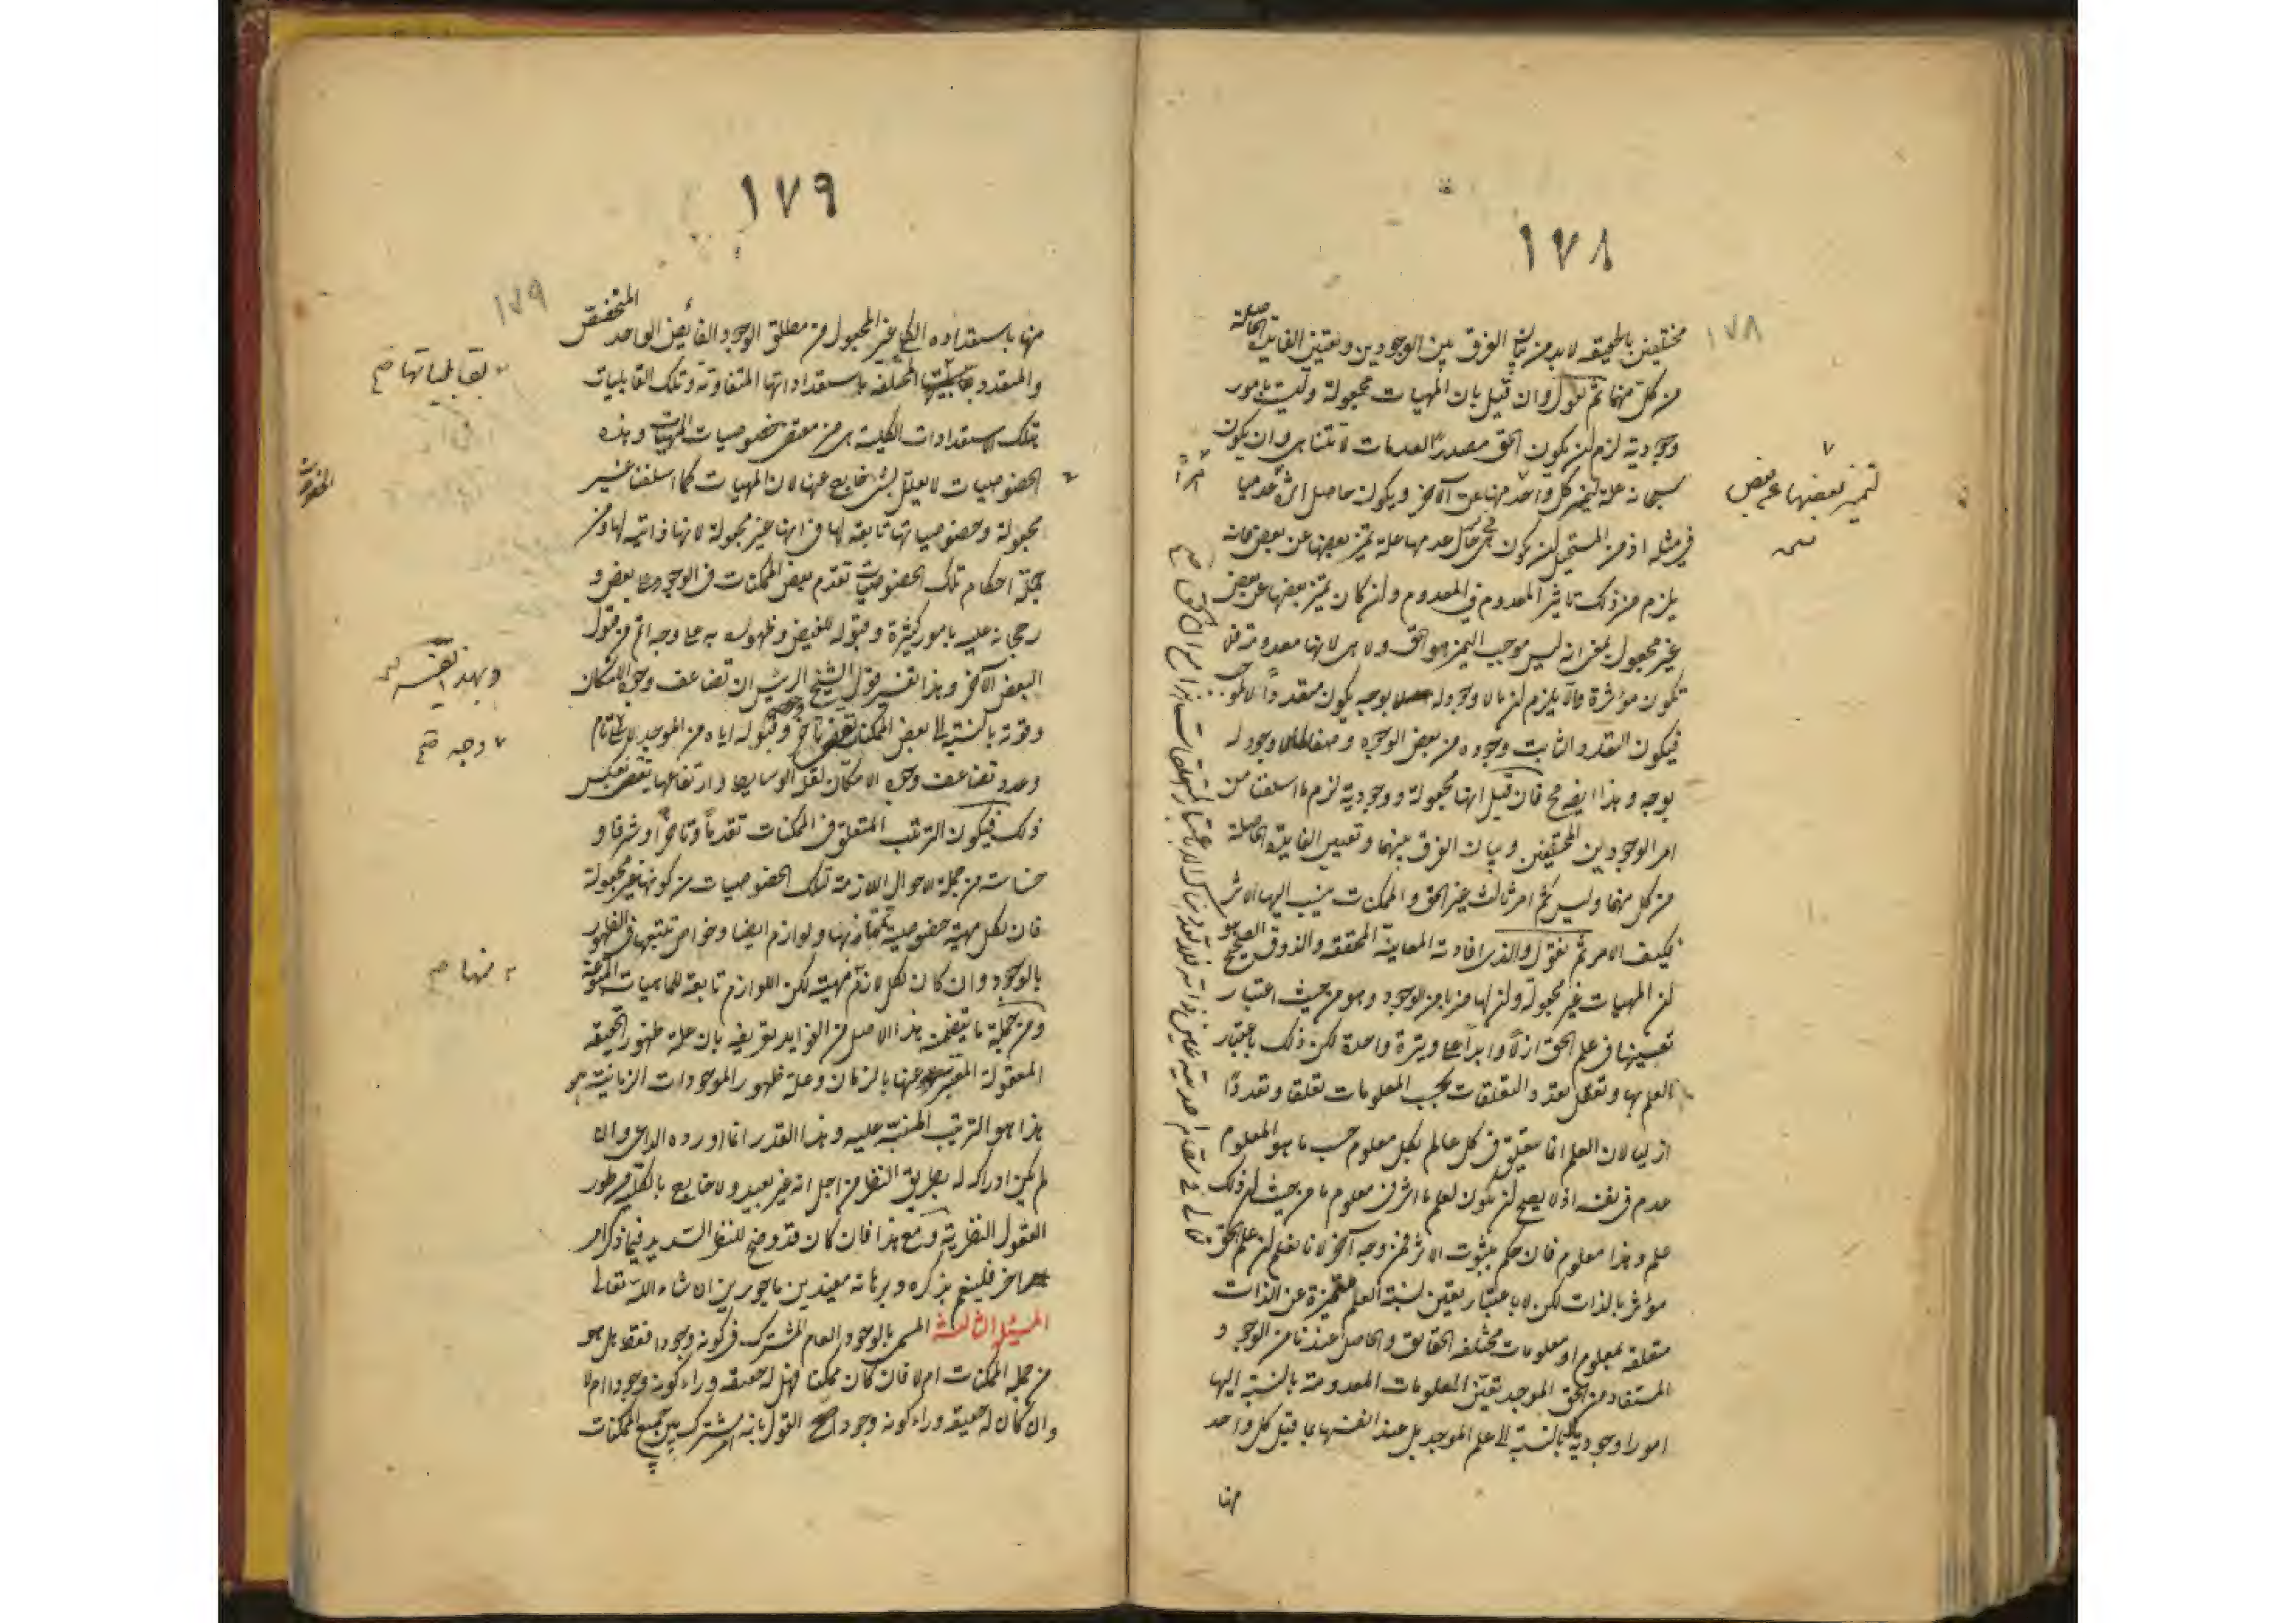 ١٧٨
١٧٨
مختلفين بالحقيقه لابد من بيان الفرق بين الوجودين وتعيين الفايدة الحاصلة
من كل منهما ثم نقول وان قيل بان المهيات مجعولة وليست بامور
وجودية لزم ان يكون الحق مصدرا لعدمات لا تتناهى وان يكون
سبحانه علة تميز كل واحد منها عن الآخر ويكون حاصل اثره عدميا
في مثله اذ من المستحيل ان يكون في حال عدمها علة تميز بعضها عن بعض فانه
يلزم من ذلك تاثير المعدوم في المعدوم وان كان تميز بعضها عن بعض
غير مجعول بمعنى انه ليس موجب التميز هو الحق ولا هى لانها معدومة فلا
تكون مؤثرة والا يلزم ان ما لا وجود له بوجه يكون متعددا
فيكون التعدد الثابت وجوده من بعض الوجوه وصفا لما لا وجود له
بوجه وهذا ايضا مح فان قيل انها مجعولة ووجودية لزم ما اسلفنا من
امر الوجودين المختلفين وبيان الفرق بينهما وتعيين الفايدة الحاصلة
من كل منهما وليس ثم امر ثالث غير الحق والممكنات ينسب اليها الاثر
فكيف الامر ثم نقول والذى افادته المعاينة المحققه والذوق الصحيح هو
ان المهيات غير مجعولة وان لها ضربا من الوجود وهو من حيث اعتبار
تعينها في علم الحق ازلا وابدا على وتيرة واحدة لكن ذلك باعتبار
العلم بها وتعقل تعدد التعلقات بحسب المعلومات تعلقا وتعددا
ازليا لان العلم انما يتعلق في كل عالم بكل معلوم حسب ما هو المعلوم
عدم في نفسه اذ لا يصح ان يكون لعلم ما اثر في معلوم ما من حيث ان ذلك
علم وهذا معلوم فان حكم بثبوت الاثر فمن وجه آخر لانا نعلم ان علم الحق
مؤثر بالذات لكن لا باعتبار تعين نسبة العلم متميزة عن الذات
متعلقه بمعلوم او معلومات مختلفه الحقايق والحاصل عندنا من الوجود و
المستفاد من الحق الموجد تعين المعلومات المعدومة بالنسبة اليها
امورا وجودية لا بالنسبة الى علم الموجد بل عند انفسها بما قبل كل واحد
منها
لتميز بعضها عن بعض
١٧٩
١٧٩
منها باستعداده الكلى غير المجعول من مطلق الوجود الفايض الواحد المتخصص
والمتعدد المختلفه باستعداداتها المتفاوتة وتلك القابليات
تلك الاستعدادات الكلية هى من مقتضى خصوصيات المهيات وهذه
الخصوصيات لا تعلل بشىء خارج عنها لان المهيات كما اسلفنا غير
مجعولة وخصوصياتها تابعة لها في انها غير مجعولة لانها ذاتية لها ومن
جملة احكام تلك الخصوصيات تقدم بعض الممكنات في الوجود على بعض و
رجحانه عليه بامور كثيرة وقبوله للفيض وظهوره به على وجه اتم من قبول
البعض الآخر وهذا تفسير قول الشيخ الرئيس ان تضاعف وجوه الامكان
وقوته بالنسبة الى بعض الممكنات وقبوله اياه من الموجد لا على تام
وعدد تضاعف وجوه الامكان لفقد الوسايط وارتفاعها يقتضى بعكس
ذلك فيكون الترتيب المتعلق في الممكنات تقدما وتاخرا وشرفا و
خساسة من جملة الاحوال اللازمة تلك الخصوصيات من كونها غير مجعولة
فان لكل مهية خصوصية تمتاز بها ولوازم ايضا وخواص تتبعها في الظهور
بالوجود وان كان لكل لازم مهية لكن اللوازم تابعة للماهيات المتبوعة
ومن جملة ما يتضمنه هذا الاصل من الفوايد تعريفه بان علة ظهور الحقيقه
المعقولة المعبر عنها بالزمان وعلة ظهور الموجودات الزمانية هو
هذا هو الترتيب المنبه عليه وهذا القدر انما اورده الداعى وان
لم يكن ادراكه له بطريق النظر من اجل انه غير بعيد ولا خارج بالكلية من طور
العقول النظرية ومع هذا فان كان قد وضح للنظر السديد فيما ذكر امر
آخر فلينعم بذكره وبرهانه مفيدين ماجورين ان شاء الله تعالى
المسئلة الثالثة المسمى بالوجود العام المشترك في كونه وجودا فقط بل هو
من جملة الممكنات ام لا فان كان ممكنا فهل له حقيقه وراء كونه وجودا ام لا
وان كان له حقيقه وراء كونه وجودا صح القول بانه امر مشترك بين جميع الممكنات
بقابلياتها صح
وبهذا تفسير
وجه صح
منها صح